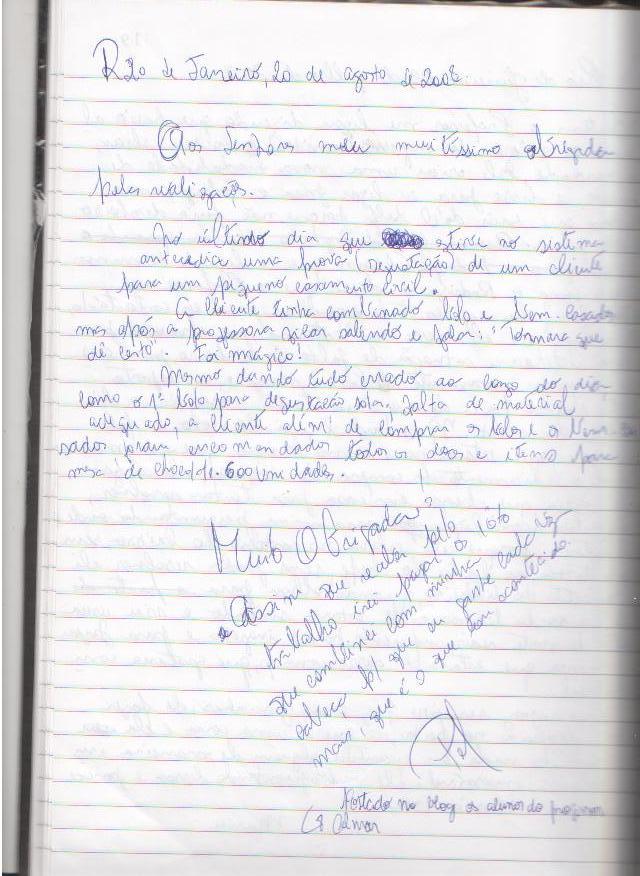 Rio de Janeiro, 20 de agosto de 2008
Aos Senhores meu muitíssimo obrigada
pelas realizações.
No último dia que estive no sistema
antecedia uma prova (degustação) de um cliente
para um pequeno casamento civil.
A cliente tinha combinado bolo e bem-casados
mas após a professora ficar sabendo e falar: "Tomara que
dê certo". Foi mágico!
Mesmo dando tudo errado ao longo do dia,
como o 1º bolo para degustação solar, falta de material
adequado, a cliente além de comprar os bolos e os bem-ca
sados foram encomendados todos os doces e itens para
mesa de chocolate. 600 unidades.
Muito Obrigada!
Assim que receber pelo
trabalho irei pagar os 10%
que combinei com minha
cabeça p/ que eu ganhe cada vez
mais, que é o que tem acontecido.
Postado no blog os alunos do professor
Odmar